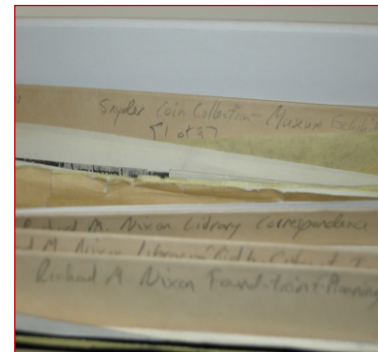 Snyder Coin Collection - Museum Exhibit
[1 of 3]
Richard M. Nixon Library Correspondence
M. Nixon Library
Richard M Nixon Foundation - Planning